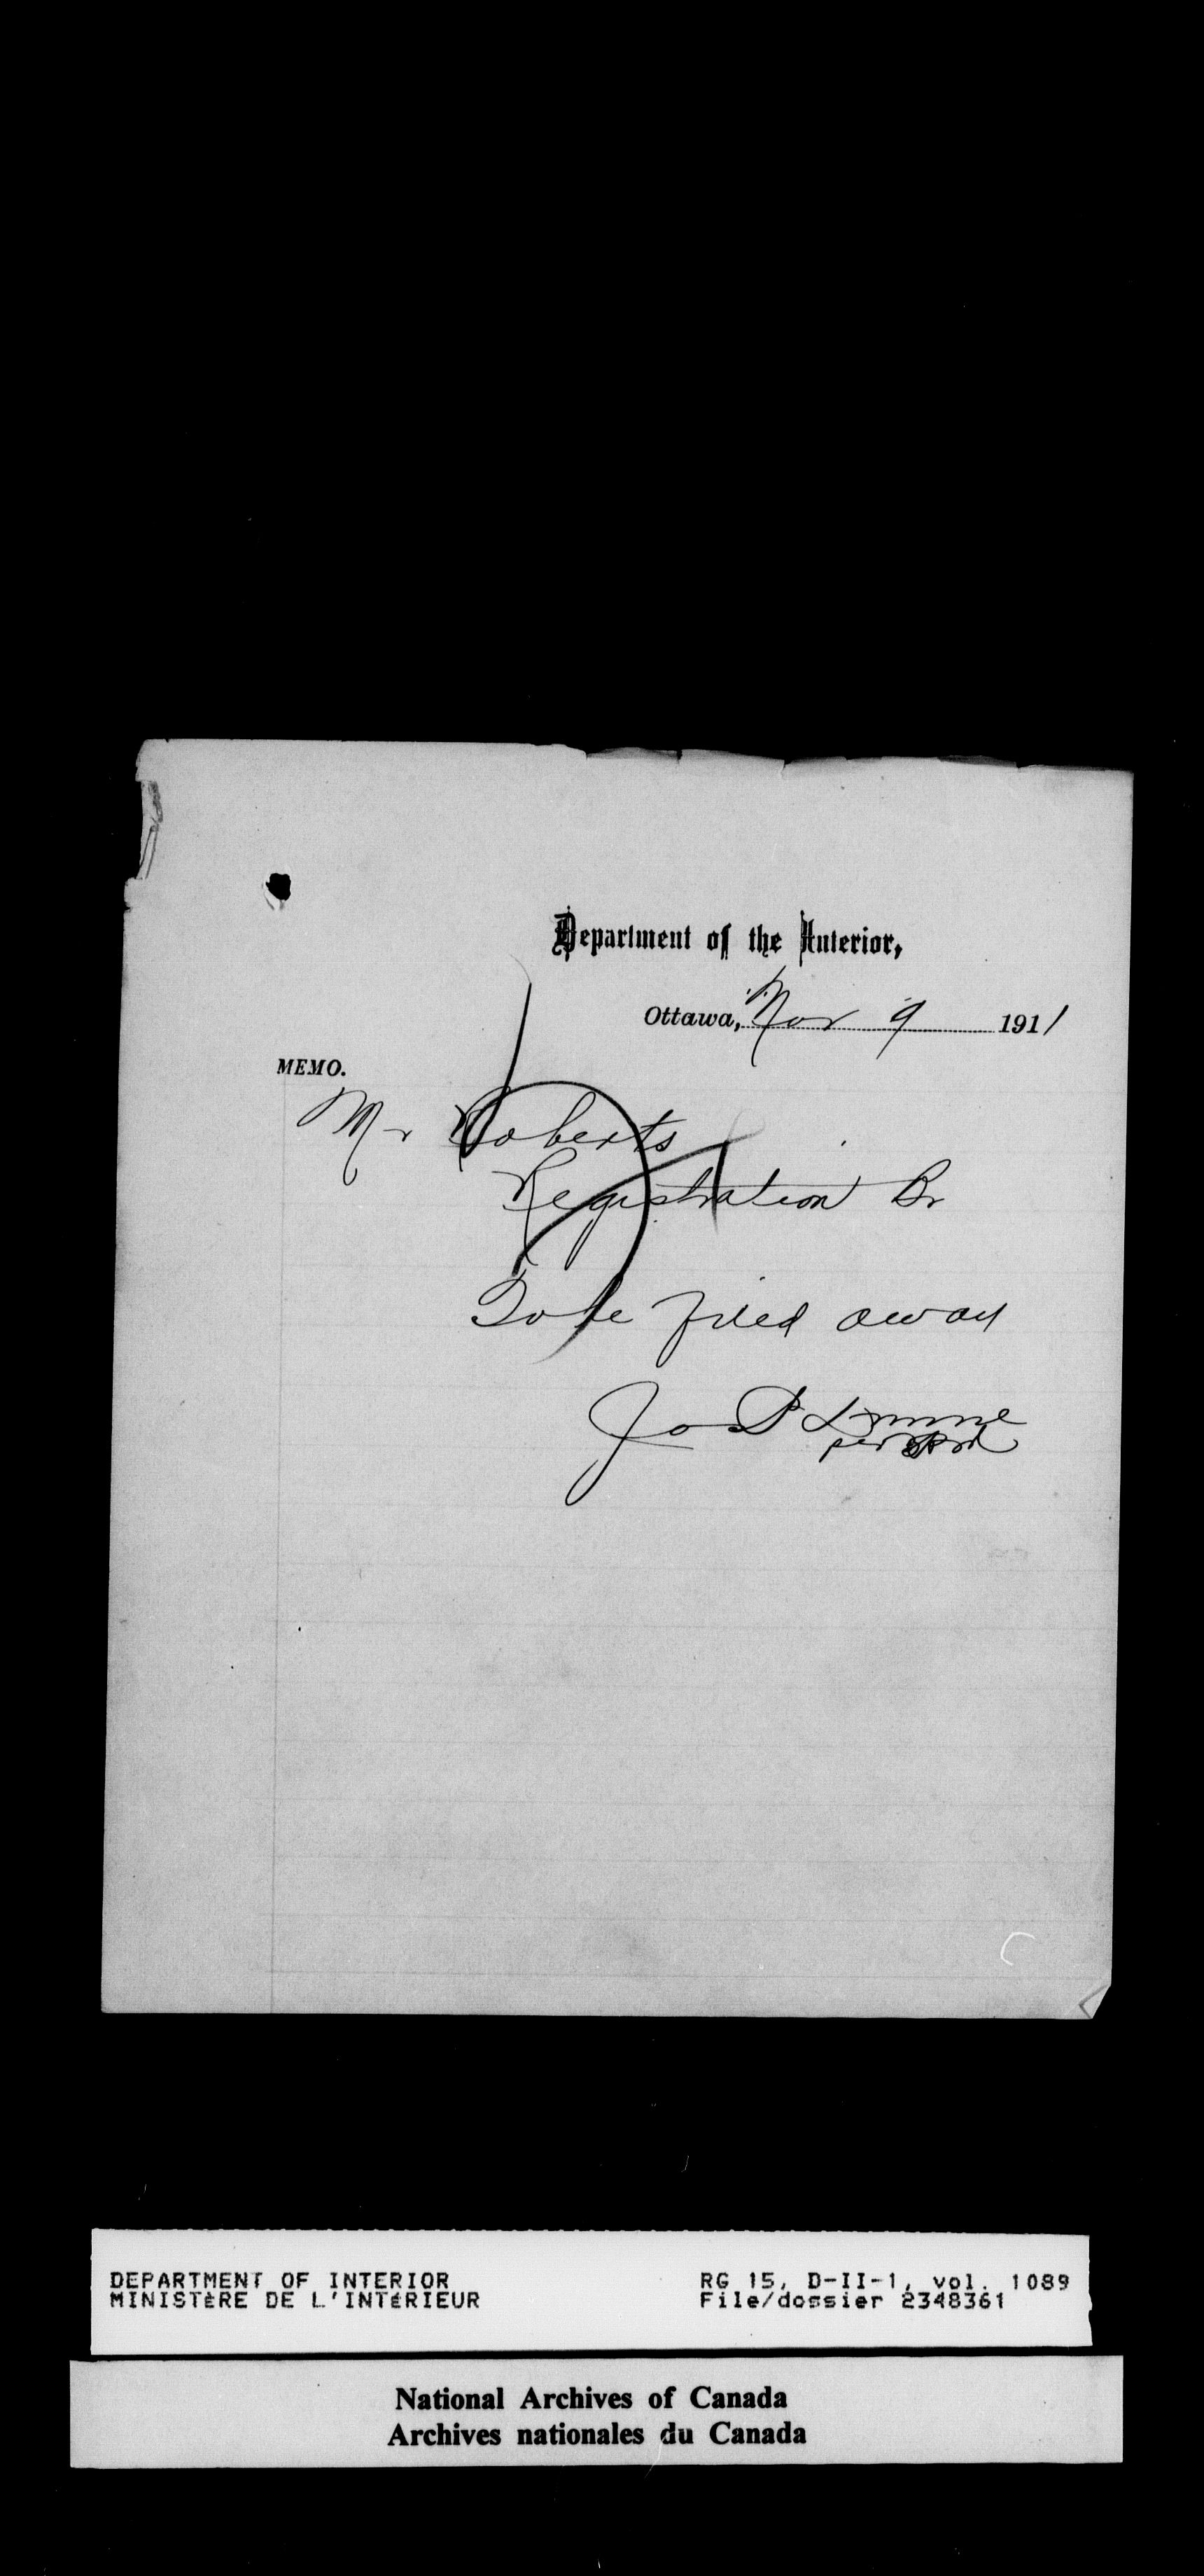 Department of the Interior,
Ottawa, Nov 9 1911
MEMO.
Mr Roberts
Registration Br
To be filed away
Jos P
per
DEPARTMENT OF INTERIOR
MINISTÈRE DE L'INTÉRIEUR
RG 15, D-II-1, vol. 1089
File/dossier 2348361
National Archives of Canada
Archives nationales du Canada